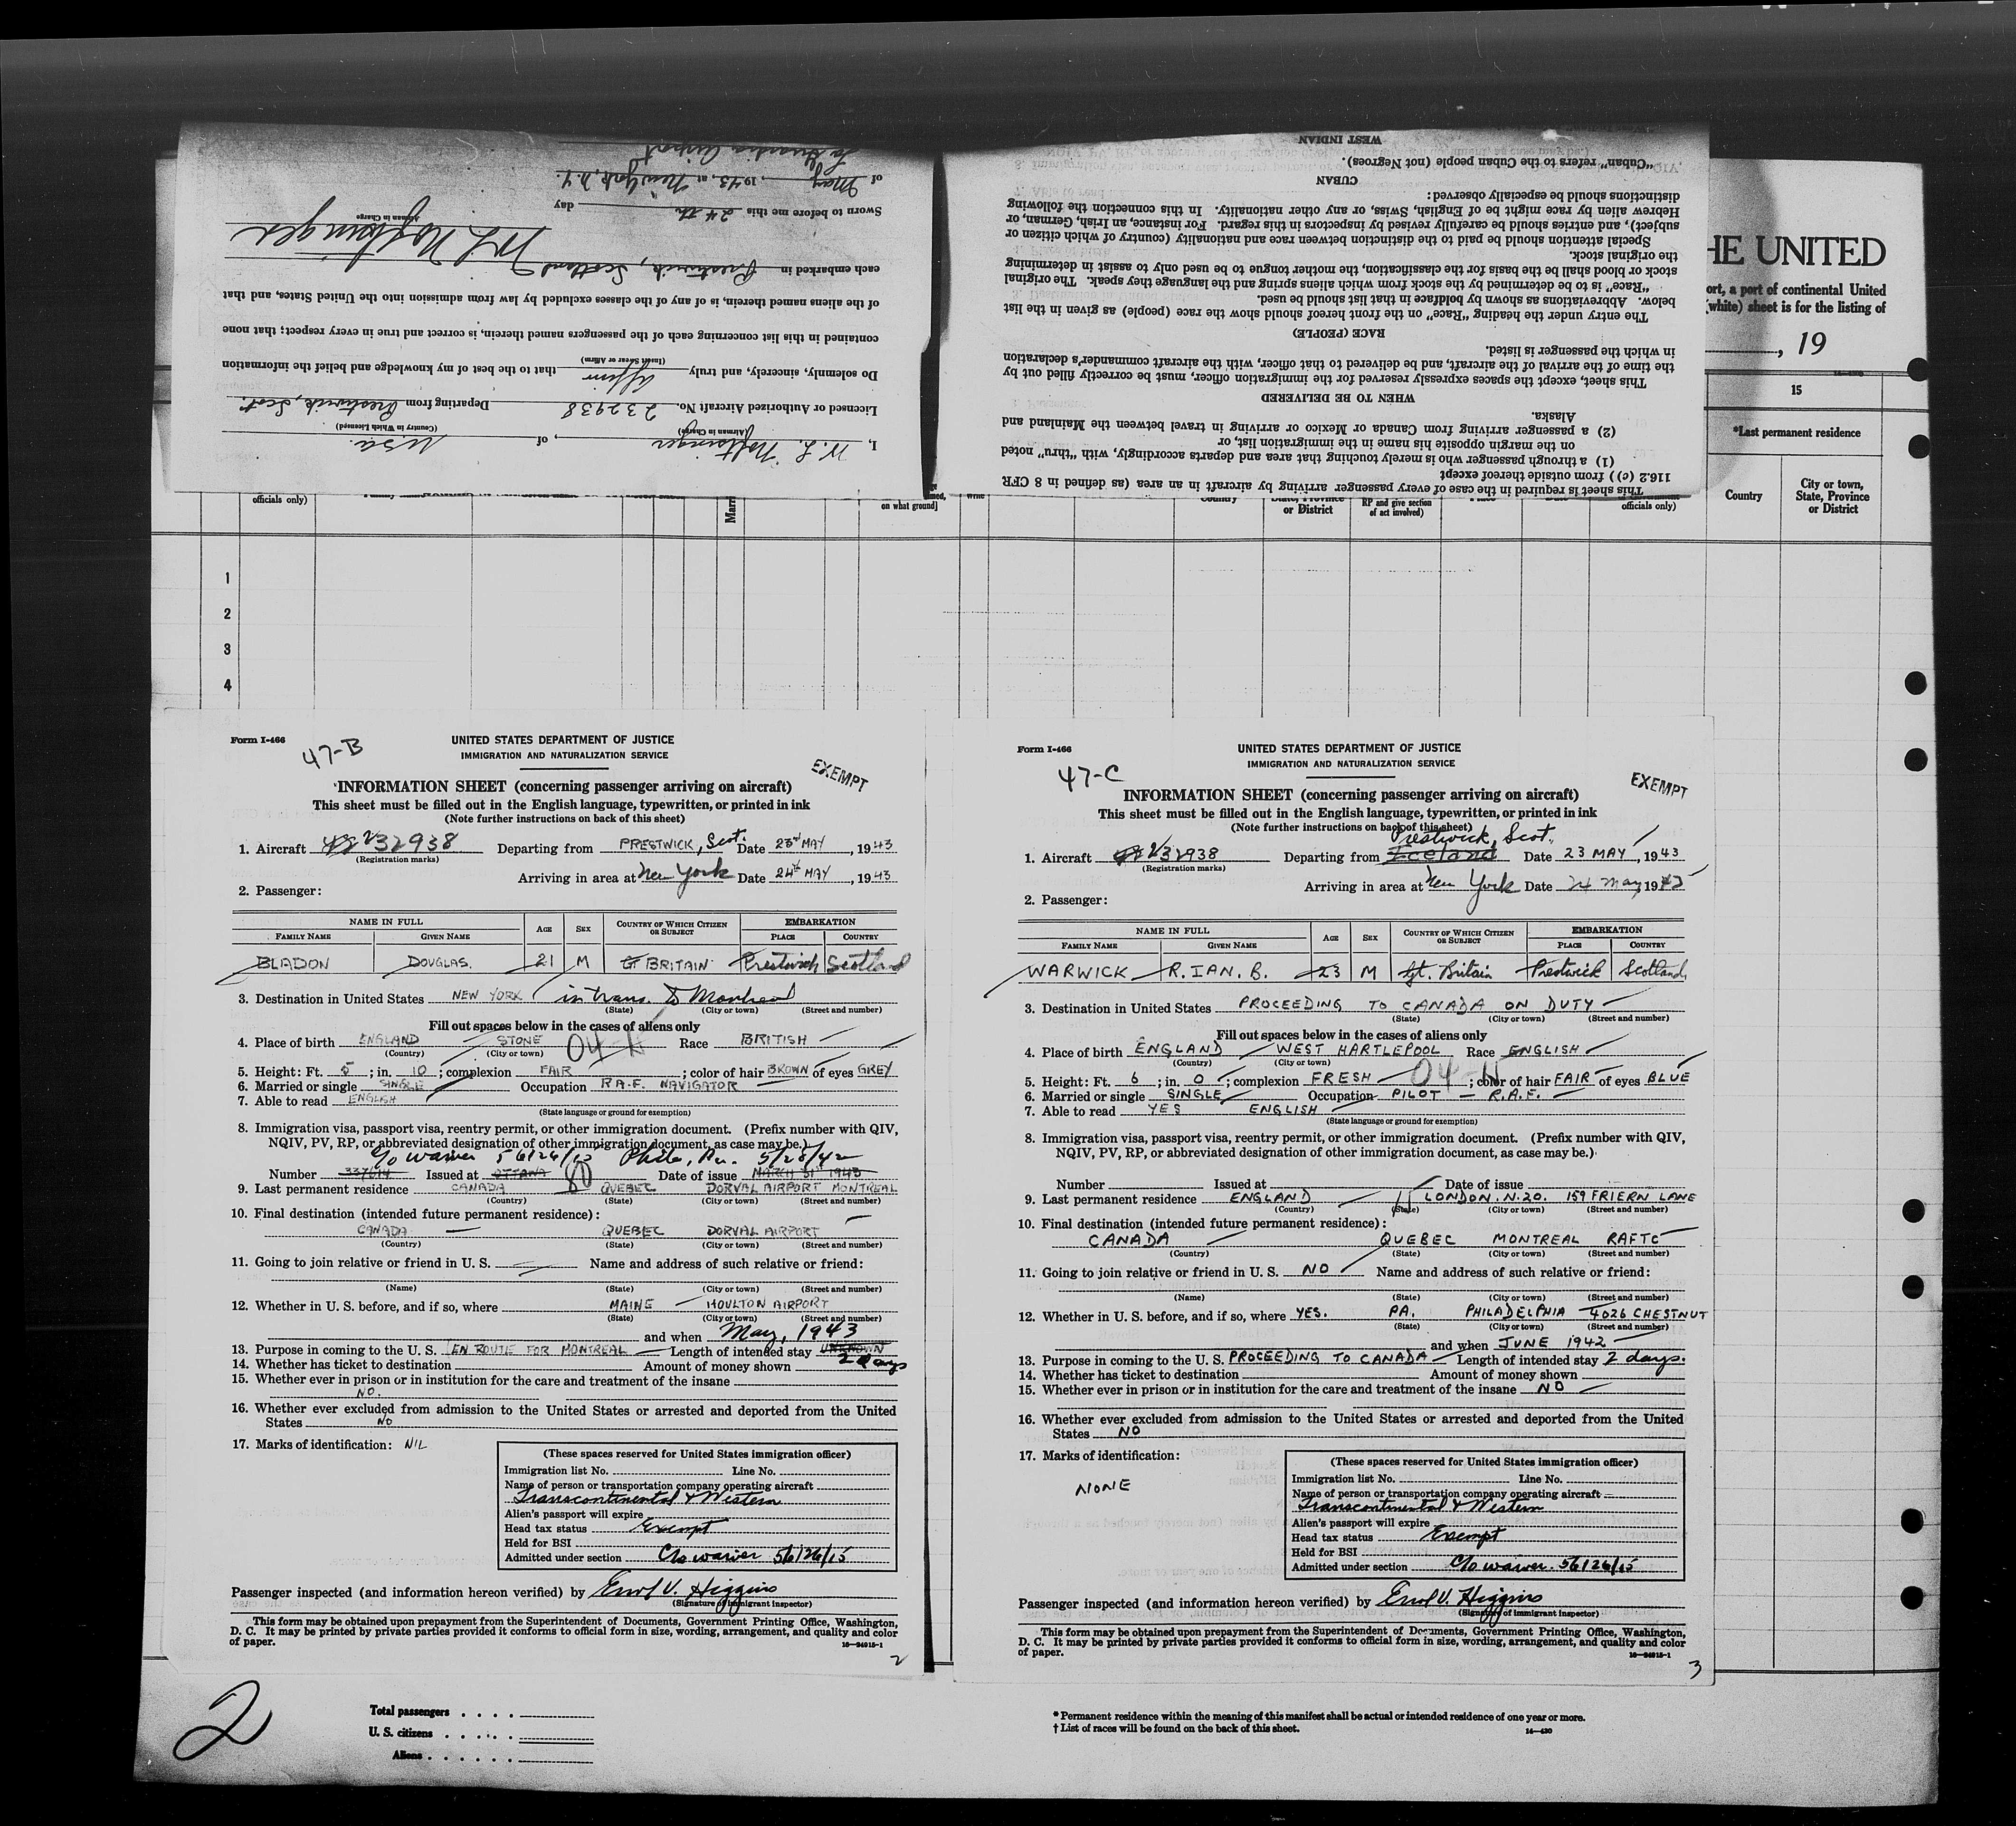 WEST INDIAN
"Cuban" refers to the Cuban people (not Negroes).
CUBAN
distinctions should be especially observed:
Hebrew alien by race might be of English, Swiss, or any other nationality. In this connection the following
subject), and entries should be carefully revised by inspectors in this regard. For instance, an Irish, German, or
Special attention should be paid to the distinction between race and nationality (country of which citizen or
the original stock.
stock or blood shall be the basis for the classification, the mother tongue to be used only to assist in determining
"Race" is to be determined by the stock from which aliens spring and the language they speak. The original
below. Abbreviations as shown by boldface in that list should be used.
The entry under the heading "Race" on the front hereof should show the race (people) as given in the list
RACE (PEOPLE)
in which the passenger is listed.
the time of the arrival of the aircraft, and be delivered to that officer, with the aircraft commander's declaration
This sheet, except the spaces expressly reserved for the immigration officer, must be correctly filled out by
WHEN TO BE DELIVERED
Alaska.
(2) a passenger arriving from Canada or Mexico or arriving in travel between the Mainland and
on the margin opposite his name in the immigration list, or
(1) a through passenger who is merely touching that area and departs accordingly, with "thru" noted
116.2 (c)) from outside thereof except
This sheet is required in the case of every passenger arriving by aircraft in an area (as defined in 8 CFR
La Guardia Airport
of May, 1943, at New York, N.Y.
Sworn to before me this 24th day
Airman in Charge
each embarked in Prestwick, Scotland
of the aliens named therein, is of any of the classes excluded by law from admission into the United States, and that
contained in this list concerning each of the passengers named therein, is correct and true in every respect; that none
(Insert Swear or Affirm)
Do solemnly, sincerely, and truly affirm that to the best of my knowledge and belief the information
Licensed or Authorized Aircraft No. 232938 Departing from Prestwick, Scot.
(Airman in Charge) (Country in Which Licensed)
I, W. L. , of USA
HE UNITED
ort, a port of continental United
(white) sheet is for the listing of
, 19
15
*Last permanent residence
Country
City or town,
State, Province
or District
officials only)
on what ground]
or District
RP and give section
of act involved)
officials only)
1
2
3
4
Form I-466
47-B
UNITED STATES DEPARTMENT OF JUSTICE
IMMIGRATION AND NATURALIZATION SERVICE
EXEMPT
INFORMATION SHEET (concerning passenger arriving on aircraft)
This sheet must be filled out in the English language, typewritten, or printed in ink
(Note further instructions on back of this sheet)
1. Aircraft 232938 Departing from PRESTWICK, Scot. Date 23rd MAY, 1943
(Registration marks)
Arriving in area at New York Date 24th MAY, 1943
2. Passenger:
NAME IN FULL
FAMILY NAME GIVEN NAME AGE SEX COUNTRY OF WHICH CITIZEN OR SUBJECT EMBARKATION PLACE COUNTRY
BLADON DOUGLAS. 21 M GT BRITAIN Prestwick Scotland
3. Destination in United States NEW YORK in trans. to Montreal
(State) (City or town) (Street and number)
Fill out spaces below in the cases of aliens only
4. Place of birth ENGLAND STONE 04-H Race BRITISH
(Country) (City or town)
5. Height: Ft. 5; in. 10; complexion FAIR; color of hair BROWN of eyes GREY
6. Married or single SINGLE Occupation R.A.F. NAVIGATOR
7. Able to read ENGLISH
(State language or ground for exemption)
8. Immigration visa, passport visa, reentry permit, or other immigration document. (Prefix number with QIV,
NQIV, PV, RP, or abbreviated designation of other immigration document, as case may be.)
waiver 56126/15 Phila, Pa. 5/28/42
Number 337614 Issued at OTTAWA 80 Date of issue MARCH 31st 1943
9. Last permanent residence CANADA QUEBEC DORVAL AIRPORT MONTREAL
(Country) (State) (City or town) (Street and number)
10. Final destination (intended future permanent residence):
CANADA QUEBEC DORVAL AIRPORT
(Country) (State) (City or town) (Street and number)
11. Going to join relative or friend in U. S. Name and address of such relative or friend:
(Name) (State) (City or town) (Street and number)
12. Whether in U. S. before, and if so, where MAINE HOULTON AIRPORT
(State) (City or town) (Street and number)
and when May, 1943
13. Purpose in coming to the U. S. EN ROUTE FOR MONTREAL Length of intended stay UNKNOWN 2 days
14. Whether has ticket to destination Amount of money shown
15. Whether ever in prison or in institution for the care and treatment of the insane
NO.
16. Whether ever excluded from admission to the United States or arrested and deported from the United
States NO
17. Marks of identification: NIL
(These spaces reserved for United States immigration officer)
Immigration list No. Line No.
Name of person or transportation company operating aircraft
Transcontinental & Western
Alien's passport will expire
Head tax status Exempt
Held for BSI
Admitted under section C/o waiver 56126/15
Passenger inspected (and information hereon verified) by Errol V. Higgins
(Signature of immigrant inspector)
This form may be obtained upon prepayment from the Superintendent of Documents, Government Printing Office, Washington,
D. C. It may be printed by private parties provided it conforms to official form in size, wording, arrangement, and quality and color
of paper.
16—24915-1
2
Form I-466
47-C
UNITED STATES DEPARTMENT OF JUSTICE
IMMIGRATION AND NATURALIZATION SERVICE
EXEMPT
INFORMATION SHEET (concerning passenger arriving on aircraft)
This sheet must be filled out in the English language, typewritten, or printed in ink
(Note further instructions on back of this sheet)
Prestwick, Scot.
1. Aircraft 232938 Departing from Iceland Date 23 MAY, 1943
(Registration marks)
Arriving in area at New York Date 24 May, 1943
2. Passenger:
NAME IN FULL
FAMILY NAME GIVEN NAME AGE SEX COUNTRY OF WHICH CITIZEN OR SUBJECT EMBARKATION PLACE COUNTRY
WARWICK R. IAN. B. 23 M Gt. Britain Prestwick Scotland
3. Destination in United States PROCEEDING TO CANADA ON DUTY
(State) (City or town) (Street and number)
Fill out spaces below in the cases of aliens only
4. Place of birth ENGLAND WEST HARTLEPOOL Race ENGLISH
(Country) (City or town)
5. Height: Ft. 6; in. 0; complexion FRESH 04-H; color of hair FAIR of eyes BLUE
6. Married or single SINGLE Occupation PILOT — R.A.F.
7. Able to read YES ENGLISH
(State language or ground for exemption)
8. Immigration visa, passport visa, reentry permit, or other immigration document. (Prefix number with QIV,
NQIV, PV, RP, or abbreviated designation of other immigration document, as case may be.)
Number Issued at Date of issue
9. Last permanent residence ENGLAND LONDON. N.20. 159 FRIERN LANE
(Country) (State) (City or town) (Street and number)
10. Final destination (intended future permanent residence):
CANADA QUEBEC MONTREAL RAFTC
(Country) (State) (City or town) (Street and number)
11. Going to join relative or friend in U. S. NO Name and address of such relative or friend:
(Name) (State) (City or town) (Street and number)
12. Whether in U. S. before, and if so, where YES. PA. PHILADELPHIA 4026 CHESTNUT
(State) (City or town) (Street and number)
and when JUNE 1942
13. Purpose in coming to the U. S. PROCEEDING TO CANADA Length of intended stay 2 days.
14. Whether has ticket to destination Amount of money shown
15. Whether ever in prison or in institution for the care and treatment of the insane NO
16. Whether ever excluded from admission to the United States or arrested and deported from the United
States NO
17. Marks of identification:
NONE
(These spaces reserved for United States immigration officer)
Immigration list No. Line No.
Name of person or transportation company operating aircraft
Transcontinental & Western
Alien's passport will expire
Head tax status Exempt
Held for BSI
Admitted under section C/o waiver. 56126/15
Passenger inspected (and information hereon verified) by Errol V. Higgins
(Signature of immigrant inspector)
This form may be obtained upon prepayment from the Superintendent of Documents, Government Printing Office, Washington,
D. C. It may be printed by private parties provided it conforms to official form in size, wording, arrangement, and quality and color
of paper.
16—24915-1
3
2
Total passengers
U. S. citizens
Aliens
* Permanent residence within the meaning of this manifest shall be actual or intended residence of one year or more.
† List of races will be found on the back of this sheet.
14—430